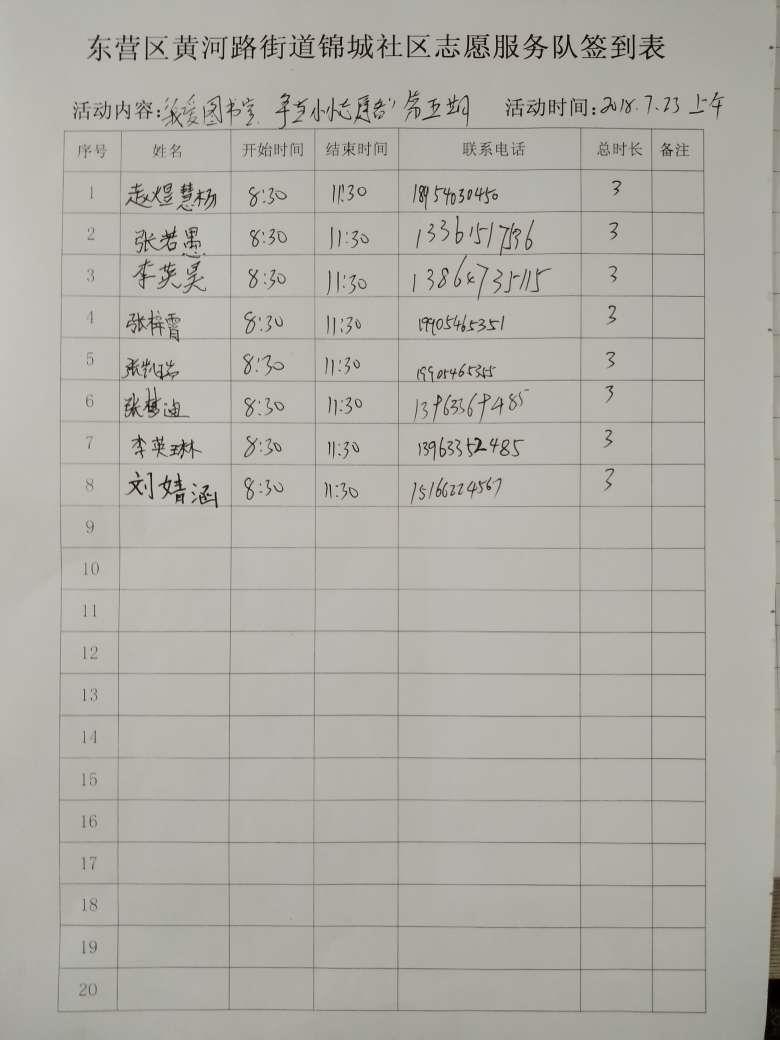 东营区黄河路街道锦城社区志愿服务队签到表
活动内容:我爱图书室 争当小志愿者 第五期 活动时间:2018.7.23 上午
序号 姓名 开始时间 结束时间 联系电话 总时长 备注
1 赵煜慧杨 8:30 11:30 18954030450 3
2 张若愚 8:30 11:30 13361517536 3
3 李英昊 8:30 11:30 13864735115 3
4 张梓霄 8:30 11:30 19905465351 3
5 张凯瑞 8:30 11:30 19905465355 3
6 张梦迪 8:30 11:30 3
7 李英琳 8:30 11:30 13963352485 3
8 刘婧涵 8:30 11:30 15166224567 3
9
10
11
12
13
14
15
16
17
18
19
20